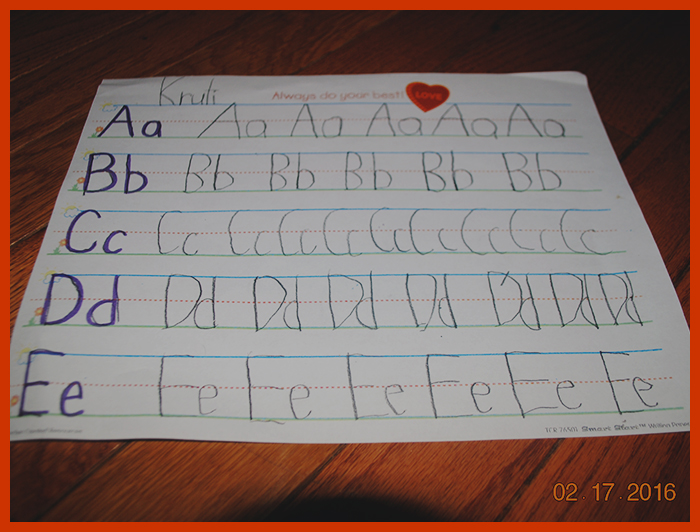 Kruli Always do your best! Love
Aa Aa Aa Aa Aa Aa
Bb Bb Bb Bb Bb Bb
Cc Cc Cc Cc Cc Cc Cc Cc Cc Cc
Dd Dd Dd Dd Dd Dd Dd Dd
Ee Ee Ee Ee Ee Ee Ee
TCR Smart Start™ Writing
02.17.2016